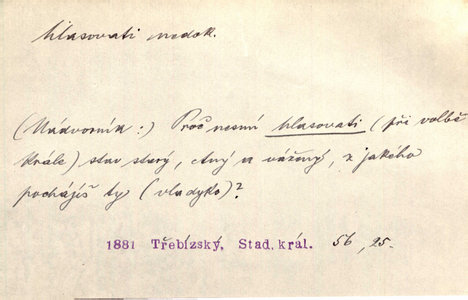 hlasovati nedok.
(Nádvorník:) Proč nesmí hlasovati (při volbě
krále) stav starý, ctný a vážený, z jakého
pocházíš ty (vladyko)?
1881 Třebízský, Stad. král. 56, 25.